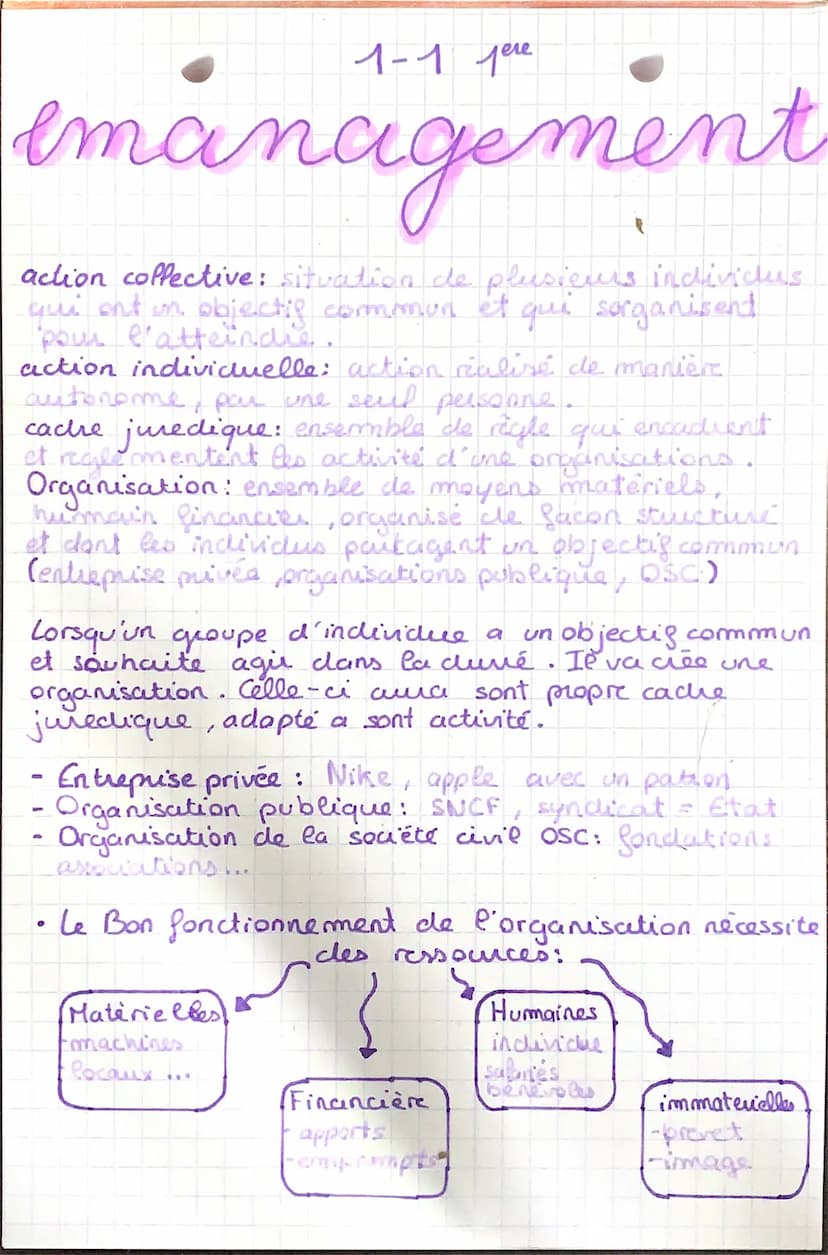 1-1 1ere
emanagement
action collective: situation de plusieurs individus
qui ont un objectif commun et qui sorganisent
pour l'atteindre.
action individuelle: action réalisé de manière
autonome, par une seul personne.
cadre juredique: ensemble de règle qui encadrent
et reglementent les activité d'une organisations.
Organisation: ensemble de moyens matériels,
humain financier, organisé de façon structuré
et dont les individus partagent un objectif commun
(entreprise privée, organisations publique, OSC)
Lorsqu'un groupe d'individue a un objectif commun
et souhaite agir dans la duré. Il va crée une
organisation. Celle-ci aura sont propre cadre
juredique, adapté a sont activité.
- Entreprise privée: Nike, apple avec un patron
- Organisation publique: SNCF, syndicat = État
- Organisation de la société civile OSC: fondations
associations...
• Le Bon fonctionnement de l'organisation nécessite
des ressources:
Matèrielles
-machines
-locaux...
Humaines
individue
salariés
bénévoles
Financière
- apports
-emprumpts
immaterielles
-brevet
-image